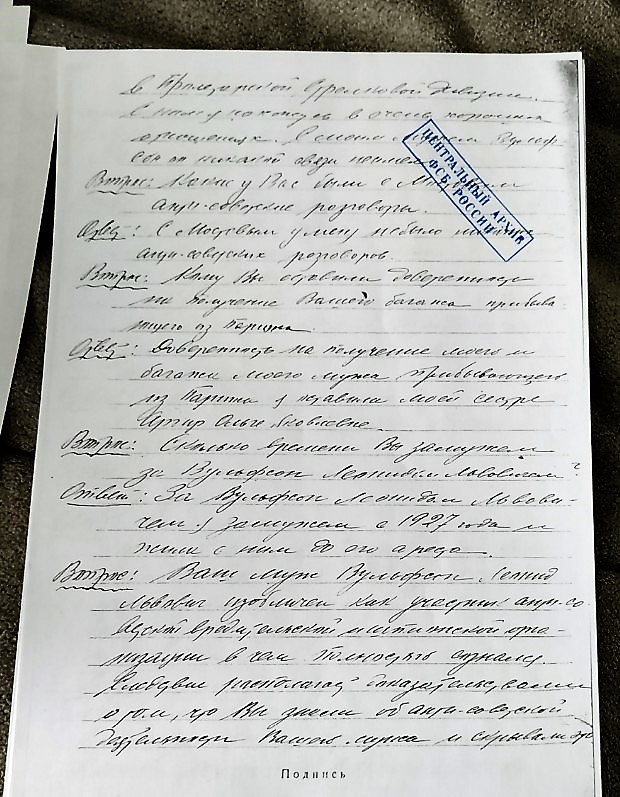 в Пролетарской Стрелковой дивизии.
в очень хороших
отношениях. С моим мужем Вульф-
сон он никакой связи
Вопрос: Какие у Вас были с
анти-советские разговоры.
Ответ: С Мосувым у меня небыло
анти-советских разговоров.
Вопрос: Кому Вы оставили доверенность
на получение Вашего багажа прибыва-
ющего из Парижа.
Ответ: Доверенность на получение моего и
багажа моего мужа прибывающего
из Парижа я оставила моей сестре
Ольге Яковлевне.
Вопрос: Сколько времени Вы замужем
за Вульфсон Леонидом Львовичем?
Ответ: За Вульфсон Леонидом Львови-
чем я замужем с 1927 года и
жила с ним до его ареста.
Вопрос: Ваш муж Вульфсон Леонид
Львович изобличен как участник анти-со-
ветской вредительской и шпионской орга-
низации в чем полностью сознался.
Следствие располагает доказательствами
о том, что Вы знали об анти-советской
деятельности Вашего мужа и скрывали
Подпись
ЦЕНТРАЛЬНЫЙ АРХИВ
ФСБ РОССИИ